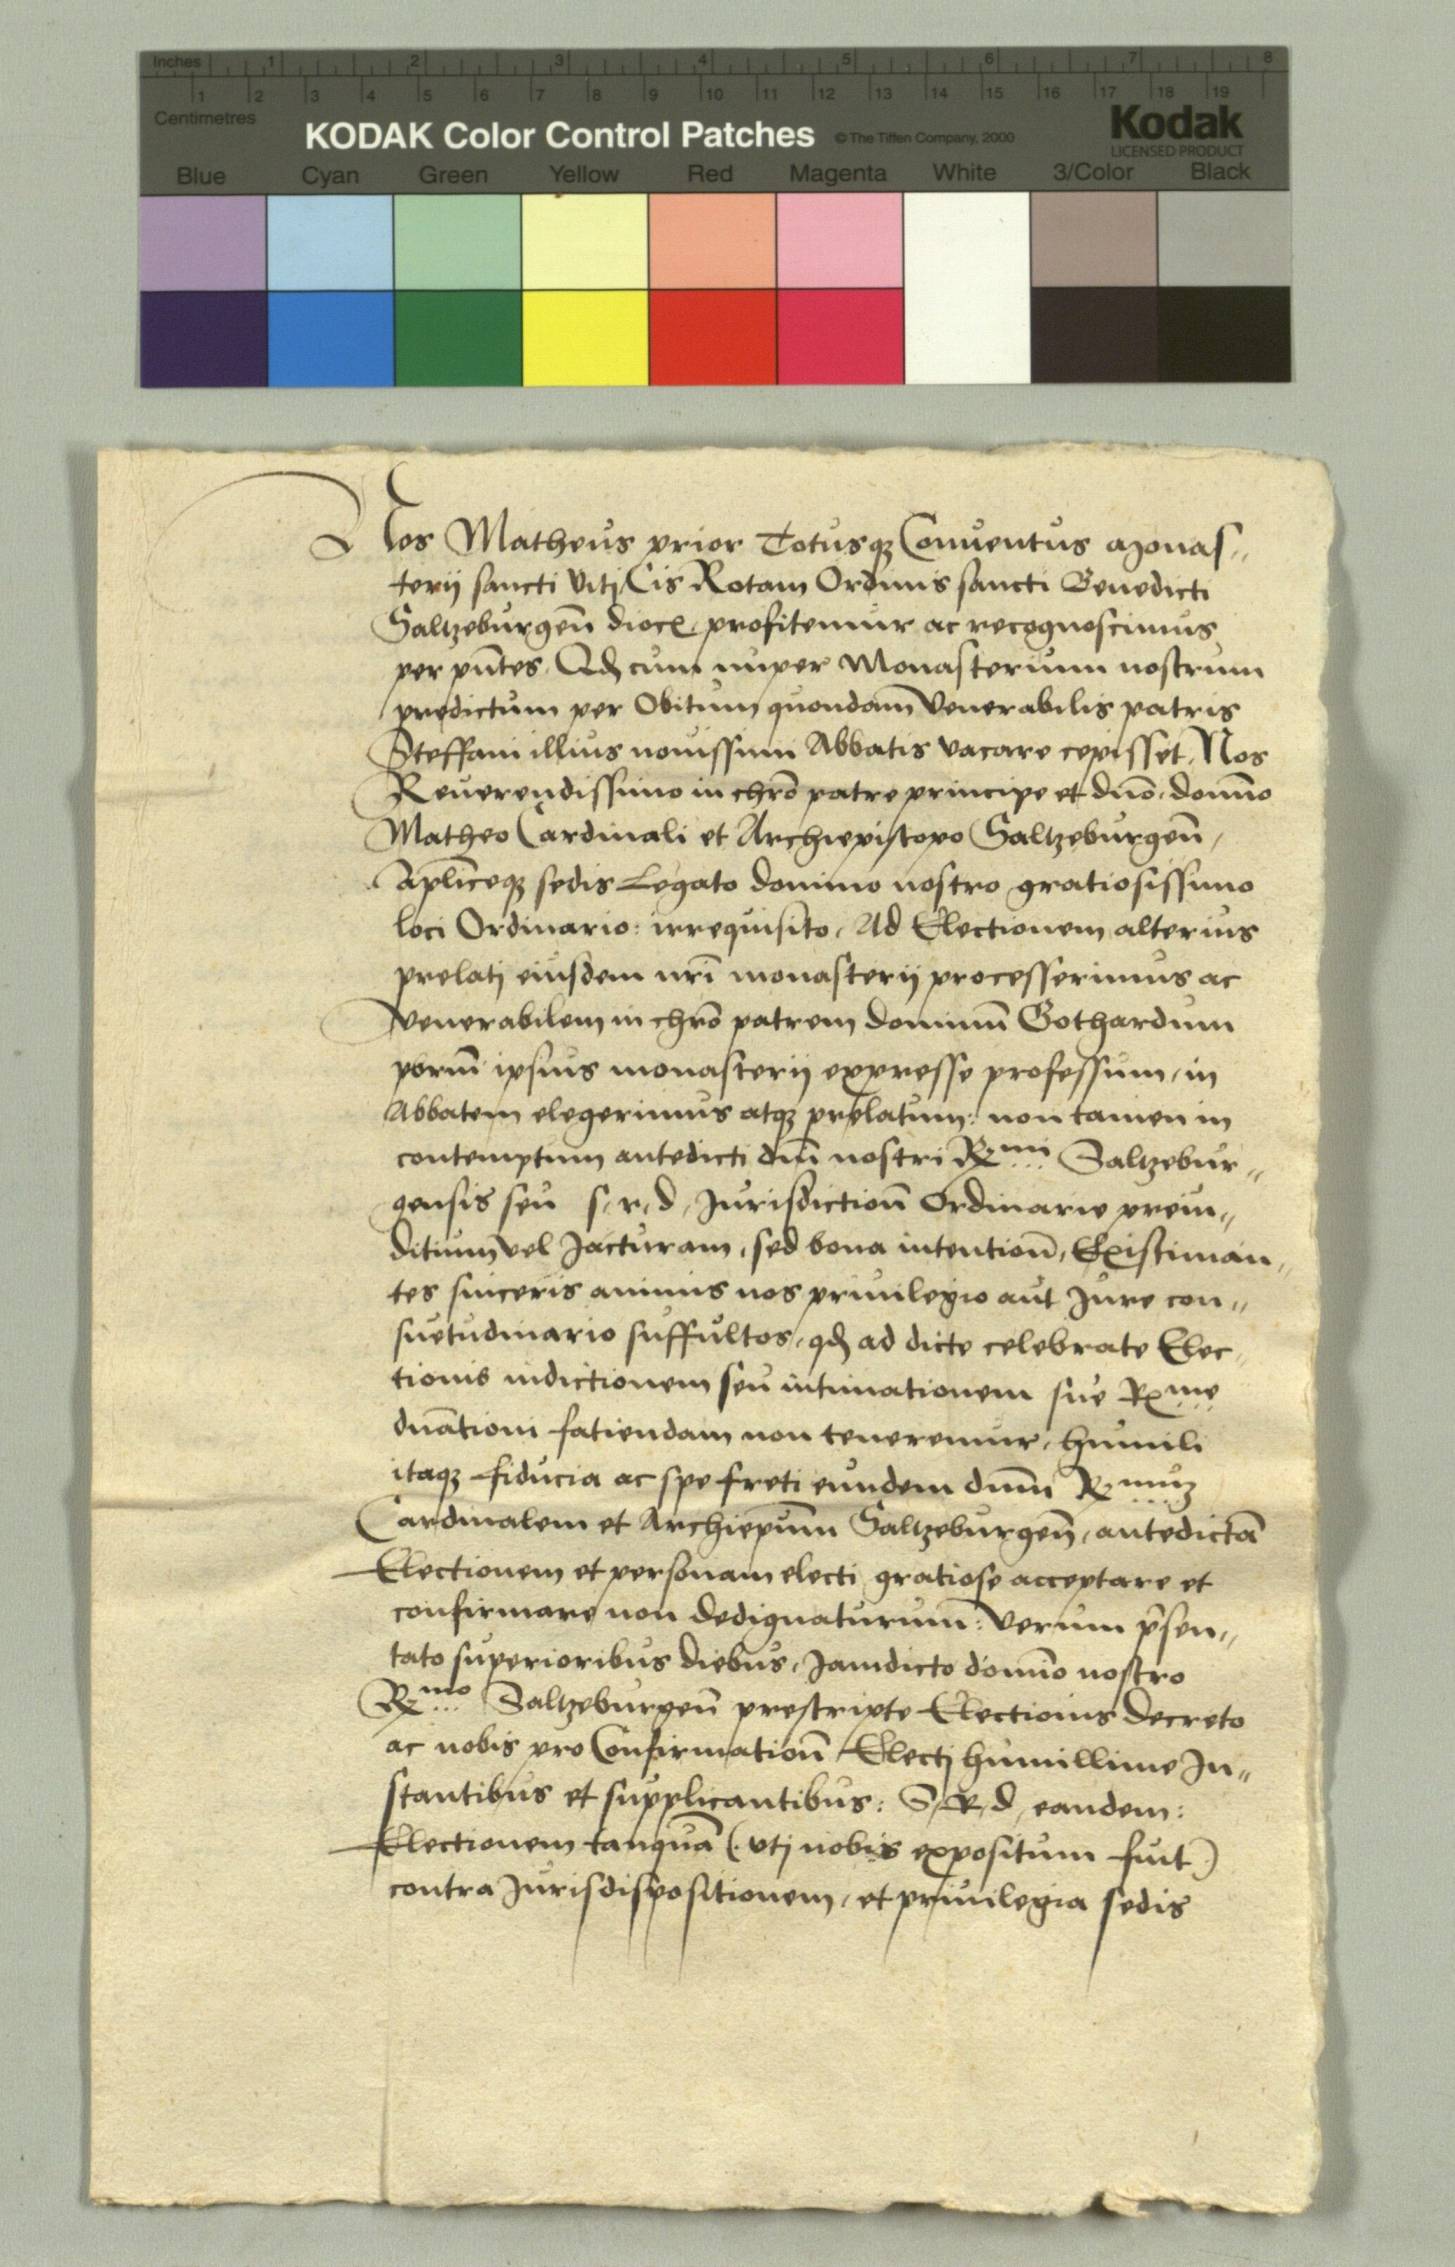 Inches 1 2 3 4 5 6 7 8
1 2 3 4 5 6 7 8 9 10 11 12 13 14 15 16 17 18 19
Centimetres
KODAK Color Control Patches © The Tiffen Company, 2000 Kodak
LICENSED PRODUCT
Blue Cyan Green Yellow Red Magenta White 3/Color Black
Nos Matheus prior Totusqz Conuentus Monas„
terij sancti Viti Cis Rotam Ordinis sancti Benedicti
Saltzeburgen̄ dioc̄ profitemur ac recognoscimus
per pn̄tes Qđ cum nuper Monasterium nostrum
predictum per Obitum quondam Venerabilis patris
Steffani illius nouissimi Abbatis vacare cepisset, Nos
Reuerendissimo in chrō patre principe et dn̄o, domīno
Matheo Cardinali et Archiepiscopo Saltzeburgen̄,
Apliceqz sedis Legato domino nostro gratiosissimo
loci Ordinario: irrequisito, Ad Electionem alterius
prelatj eiusdem nr̄i monasterij processerimus ac
Venerabilem in chrō patrem dominū Gothardum
priorē ipsius monasterij expresse professum, in
Abbatem elegerimus atqz prelatum: non tamen in
contemptum antedicti dn̄i nostri R̃mi Saltzebur„
gensis seu s, r, d, Jurisdiction̄ Ordinarie preiu„
ditium vel Jacturam, sed bona intention̄, Existiman„
tes sinceris animis nos priuilegio aut Jure con„
suetudinario suffultos, qđ ad dicte celebrate Elec„
tionis indictionem seu intimationem sue R̃me
dn̄ationi fatiendam non teneremur, humili
itaqz fiducia ac spe freti eundem dn̄m R̃muz
Cardinalem et Archiepūm Saltzeburgen̄, antedictā
Electionem et personam electi gratiose acceptare et
confirmare non dedignaturum: Verum p̄sen„
tato superioribus diebus, Jamdicto domīno nostro
R̃mo Saltzeburgen̄ prescripte Electionis decreto
ac nobis pro Confirmation̄ Electj humillime In„
stantibus et supplicantibus: S, R, d, eandem:
Electionem tanquā (: vtj nobis expositum fuit)
contra Jurisdispositionem, et priuilegia sedis